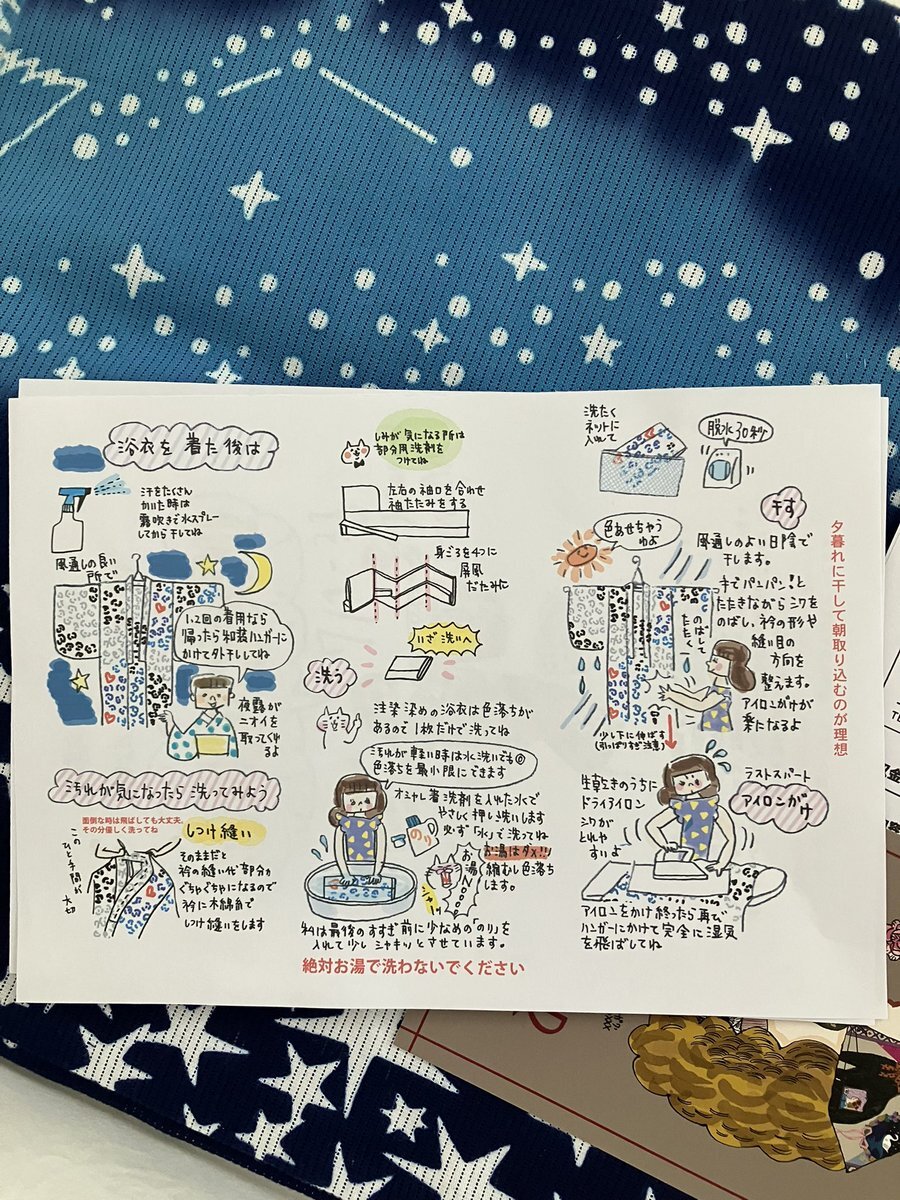 浴衣を着た後は
汗をたくさん
かいた時は
霧吹きで水スプレー
してから干してね
風通しの良い
所で
1、2回の着用なら
帰ったら和装ハンガーに
かけて外干ししてね
夜露が
ニオイを
取ってくれ
るよ
汚れが気になったら洗ってみよう
面倒な時は飛ばしても大丈夫。
その分優しく洗ってね
この
ひと手間が
大切
しつけ縫い
そのままだと
衿の縫い代部分が
ぐちゃぐちゃになるので
衿に木綿糸で
しつけ縫いをします
しみが気になる所は
部分用洗剤を
つけてね
左右の袖口を合わせ
袖だたみをする
身ごろを4つに
屏風
だたみに
いざ洗いへ
洗う
注染染めの浴衣は色落ちが
あるので1枚だけで洗ってね
汚れが軽い時は水洗いでも◎
色落ちを最小限にできます
オシャレ着洗剤を入れた水で
やさしく押し洗いします
必ず「水」で洗ってね
お湯はダメ!!
縮むし色落ち
します。
のり
お湯
NOooo
シャーッ
私は最後のすすぎ前に少なめの「のり」を
入れて少しシャキッとさせています。
絶対お湯で洗わないでください
洗たく
ネットに
入れて
脱水30秒
干す
色あせちゃう
わよ
風通しのよい日陰で
干します。
手でパンパン!と
たたきながらシワを
のばし、衿の形や
縫い目の
方向を
整えます。
アイロンがけが
楽になるよ
のばして
たたく
少し下に伸ばす
(引っぱりすぎ注意)
夕暮れに干して朝取り込むのが理想
生乾きのうちに
ドライアイロン
シワが
とれや
すいよ
ラストスパート
アイロンがけ
アイロンをかけ終ったら再び
ハンガーにかけて完全に湿気
を飛ばしてね